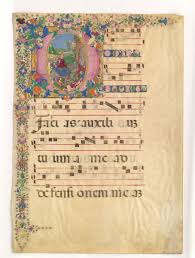 faci as auxili uz
tu um a me ad
de fensi onem me az